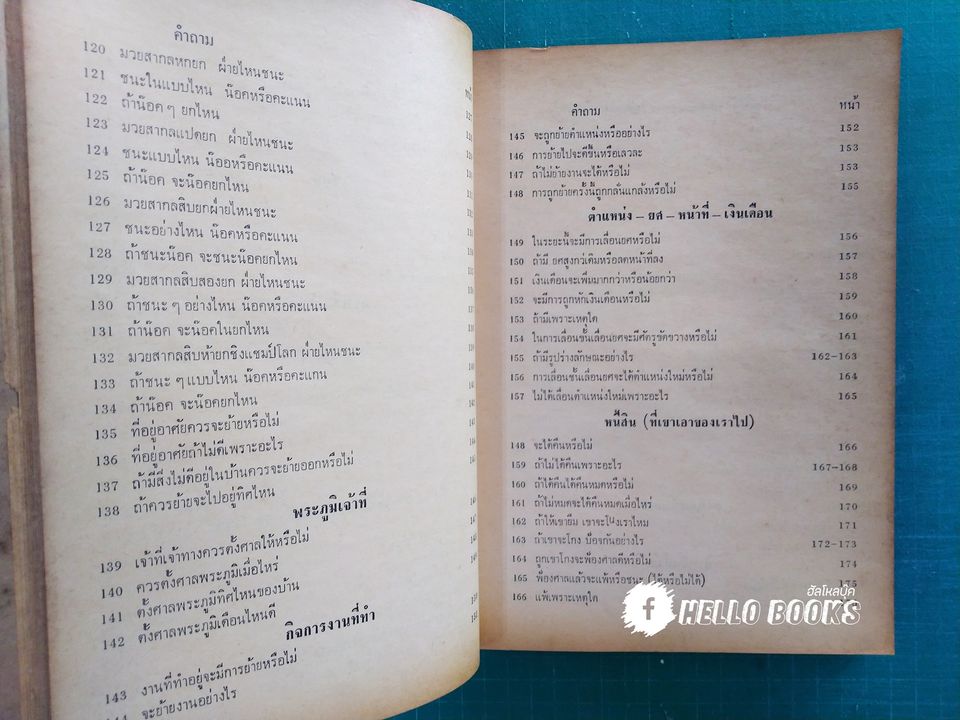 คำถาม
120 มวยสากลหกยก ฝ่ายไหนชนะ
121 ชนะในแบบไหน น๊อคหรือคะแนน
122 ถ้าน๊อค ๆ ยกไหน
123 มวยสากลแปดยก ฝ่ายไหนชนะ
124 ชนะแบบไหน น๊ออหรือคะแนน
125 ถ้าน๊อค จะน๊อคยกไหน
126 มวยสากลสิบยกฝ่ายไหนชนะ
127 ชนะอย่างไหน น๊อคหรือคะแนน
128 ถ้าชนะน๊อค จะชนะน๊อคยกไหน
129 มวยสากลสิบสองยก ฝ่ายไหนชนะ
130 ถ้าชนะ ๆ อย่างไหน น๊อคหรือคะแนน
131 ถ้าน๊อค จะน๊อคในยกไหน
132 มวยสากลสิบห้ายกชิงแชมป์โลก ฝ่ายไหนชนะ
133 ถ้าชนะ ๆ แบบไหน น๊อคหรือคะแกน
134 ถ้าน๊อค จะน๊อคยกไหน
135 ที่อยู่อาศัยควรจะย้ายหรือไม่
136 ที่อยู่อาศัยถ้าไม่ดีเพราะอะไร
137 ถ้ามีสิ่งไม่ดีอยู่ในบ้านควรจะย้ายออกหรือไม่
138 ถ้าควรย้ายจะไปอยู่ทิศไหน
พระภูมิเจ้าที่
139 เจ้าที่เจ้าทางควรตั้งศาลให้หรือไม่
140 ควรตั้งศาลพระภูมิเมื่อไหร่
141 ตั้งศาลพระภูมิทิศไหนของบ้าน
142 ตั้งศาลพระภูมิเดือนไหนดี
กิจการงานที่ทำ
143 งานที่ทำอยู่จะมีการย้ายหรือไม่
144 จะย้ายงานอย่างไร
คำถาม หน้า
145 จะถูกย้ายตำแหน่งหรืออย่างไร 152
146 การย้ายไปจะดีขึ้นหรือเลวละ 153
147 ถ้าไม่ย้ายงานจะได้หรือไม่ 153
148 การถูกย้ายครั้งนี้ถูกกลั่นแกล้งหรือไม่ 155
ตำแหน่ง – ยศ – หน้าที่ – เงินเดือน
149 ในระยะนี้จะมีการเลื่อนยศหรือไม่ 156
150 ถ้ามี ยศสูงกว่เดิมหรือลดหน้าที่ลง 157
151 เงินเดือนจะเพิ่มมากกว่าหรือน้อยกว่า 158
152 จะมีการถูกหักเงินเดือนหรือไม่ 159
153 ถ้ามีเพราะเหตุใด 160
154 ในการเลื่อนขั้นเลื่อนยศจะมีศัตรูขัดขวางหรือไม่ 161
155 ถ้ามีรูปร่างลักษณะอย่างไร 162–163
156 การเลื่อนชั้นเลื่อนยศจะได้ตำแหน่งใหม่หรือไม่ 164
157 ไม่ได้เลื่อนตำแหน่งใหม่เพราะอะไร 165
หนี้สิน (ที่เขาเอาของเราไป)
148 จะได้คืนหรือไม่ 166
159 ถ้าไม่ได้คืนเพราะอะไร 167–168
160 ถ้าได้คืนได้คืนหมดหรือไม่ 169
161 ถ้าไม่หมดจะได้คืนหมดเมื่อไหร่ 170
162 ถ้าให้เขายืม เขาจะโกงเราไหม 171
163 ถ้าเขาจะโกง ป้องกันอย่างไร 172–173
164 ถูกเขาโกงจะฟ้องศาลดีหรือไม่ 174
165 ฟ้องศาลแล้วจะแพ้หรือชนะ (ได้หรือไม่ได้) 175
166 แพ้เพราะเหตุใด
ฮัลโหลบุ๊ค
HELLO BOOKS